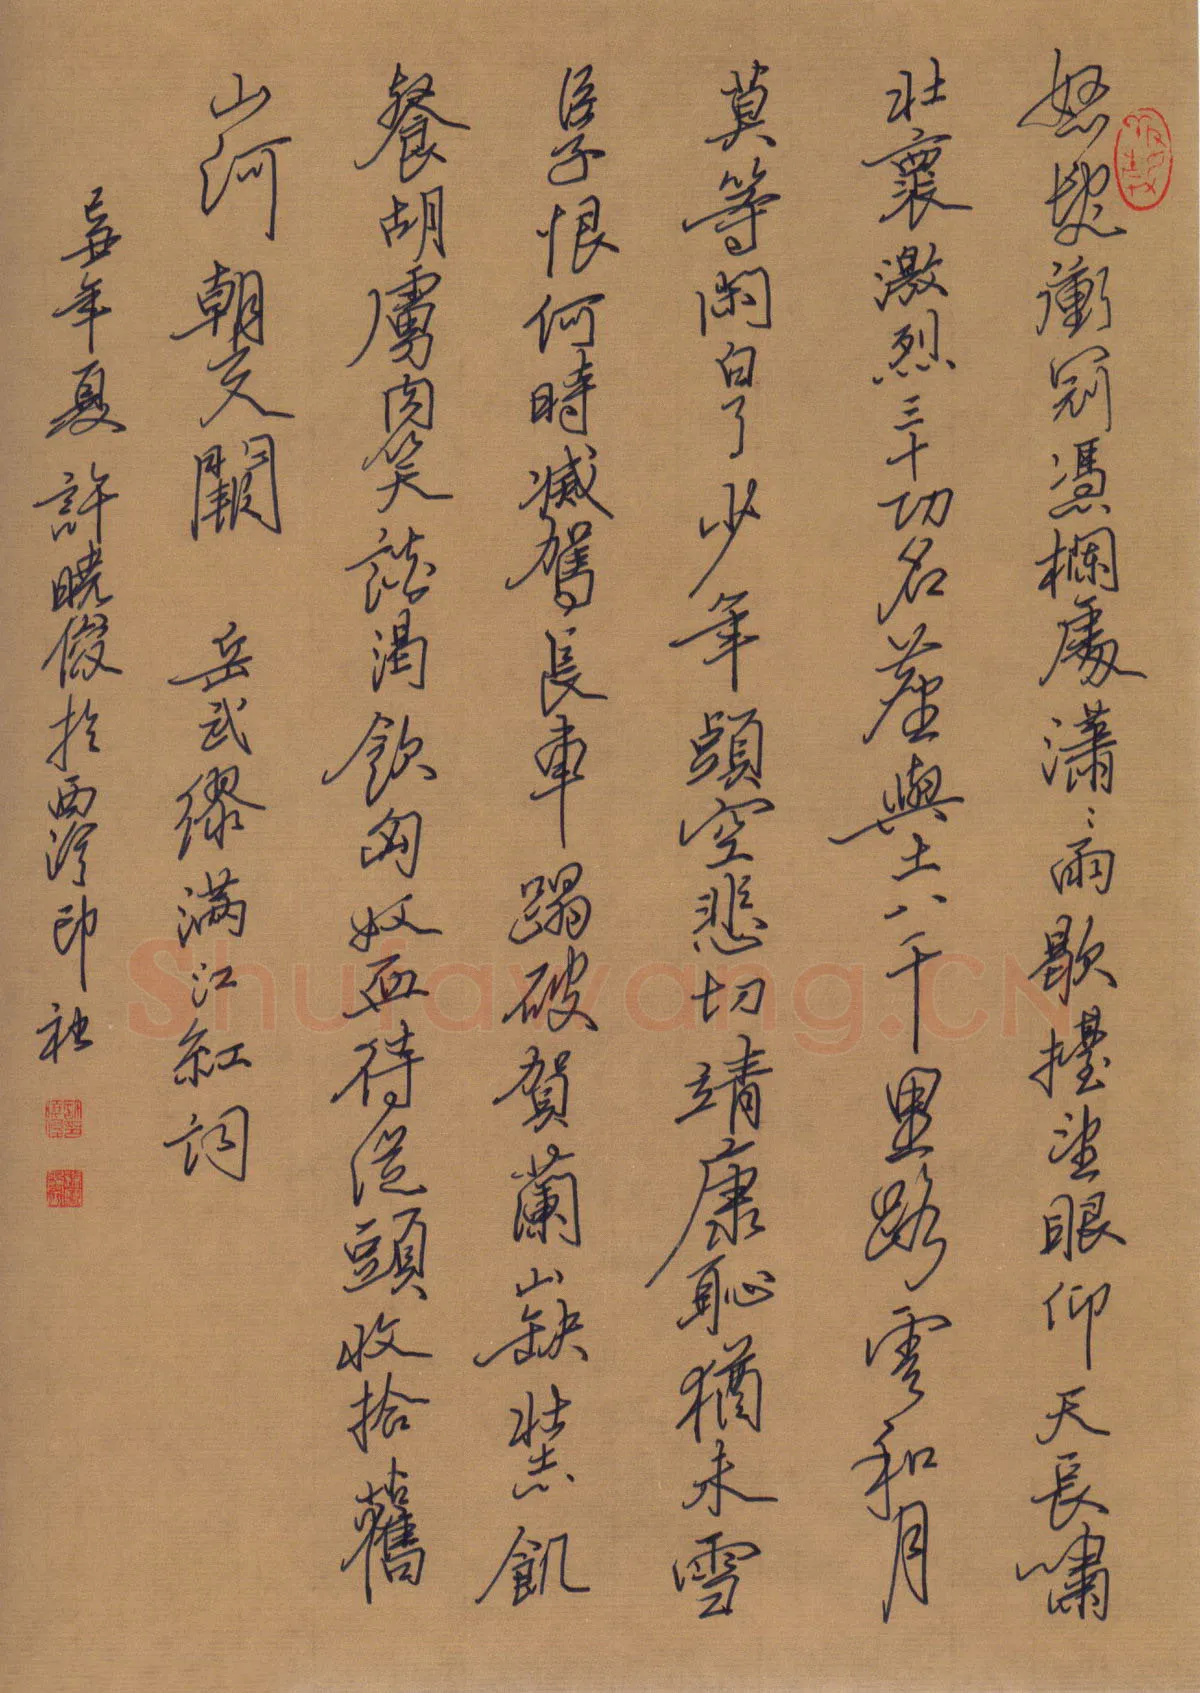 怒髮衝冠憑欄處瀟〻雨歇擡望眼仰天長嘯
壯褱激烈三十功名塵與土八千里路雲和月
莫等閑白了少年頭空悲切靖康恥猶未雪
臣子恨何時滅駕長車蹋破賀蘭山缺壯志飢
餐胡虜肉笑談渴飲匈奴血待從頭收拾舊
山河朝天闕 岳武繆滿江紅詞
己丑年夏許曉俊於西泠印社
Shufawang.CN